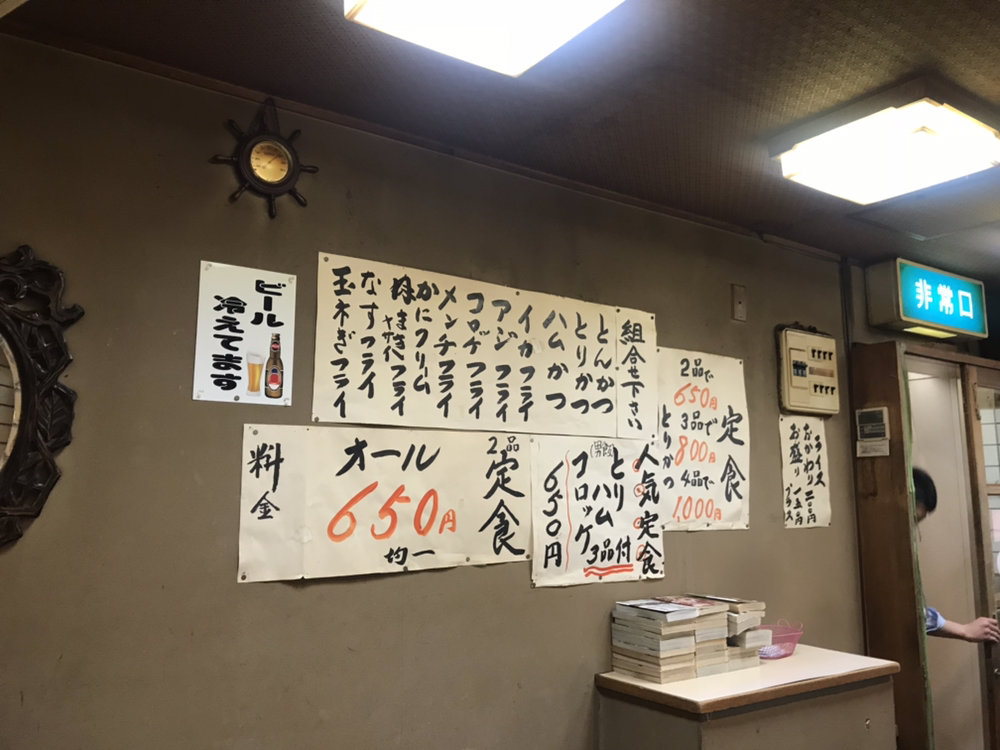 ビール
冷えてます
組合せ下さい
とんかつ
とりかつ
ハムかつ
イカフライ
アジフライ
コロッケフライ
メンチフライ
かにクリーム
なすフライ
玉ネぎフライ
2品で
650円
3品で
800円
4品で
1,000円
定食
とりかつ
ライス
おかわり 二〇〇円
お盛り 一五〇円
プラス
非常口
2品
定食
オール
650円
均一
料金
人気定食
とり
ハム
コロッケ
3品付
650円